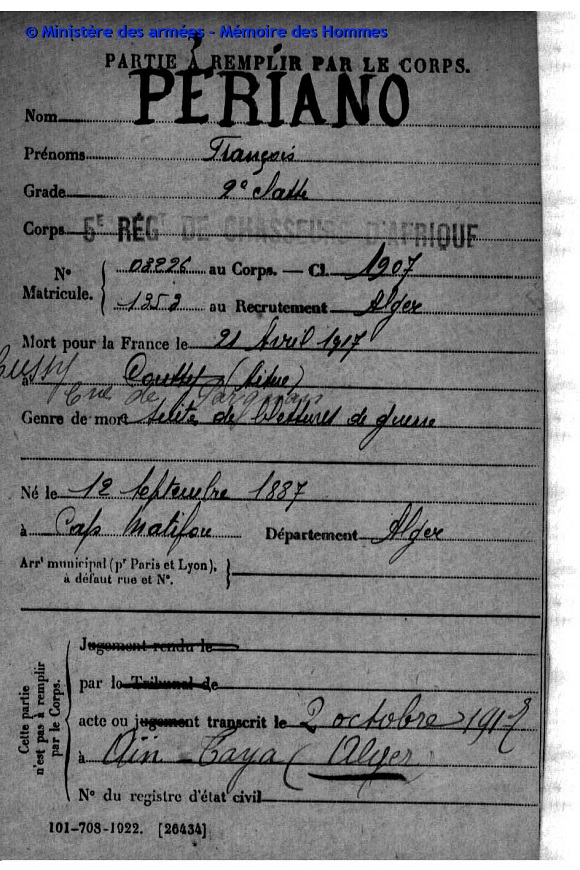 © Ministère des armées - Mémoire des Hommes
PARTIE À REMPLIR PAR LE CORPS.
Nom PERIANO
Prénoms François
Grade 2e Classe
Corps 5E RÉGT DE CHASSEURS D'AFRIQUE
N° Matricule. { 03226 au Corps. — Cl. 1907
1353 au Recrutement Alger
Mort pour la France le 21 Avril 1917
à (Aisne)
Cne de
Genre de mort suites de blessures de guerre
Né le 12 septembre 1887
à Cap Matifou Département Alger
Arrt municipal (pr Paris et Lyon), à défaut rue et N°.
Cette partie n'est pas à remplir par le Corps.
Jugement rendu le
par le Tribunal de
acte ou jugement transcrit le 2 octobre 1917
à Aïn-Taya (Alger)
N° du registre d'état civil
101-708-1022. [26434]